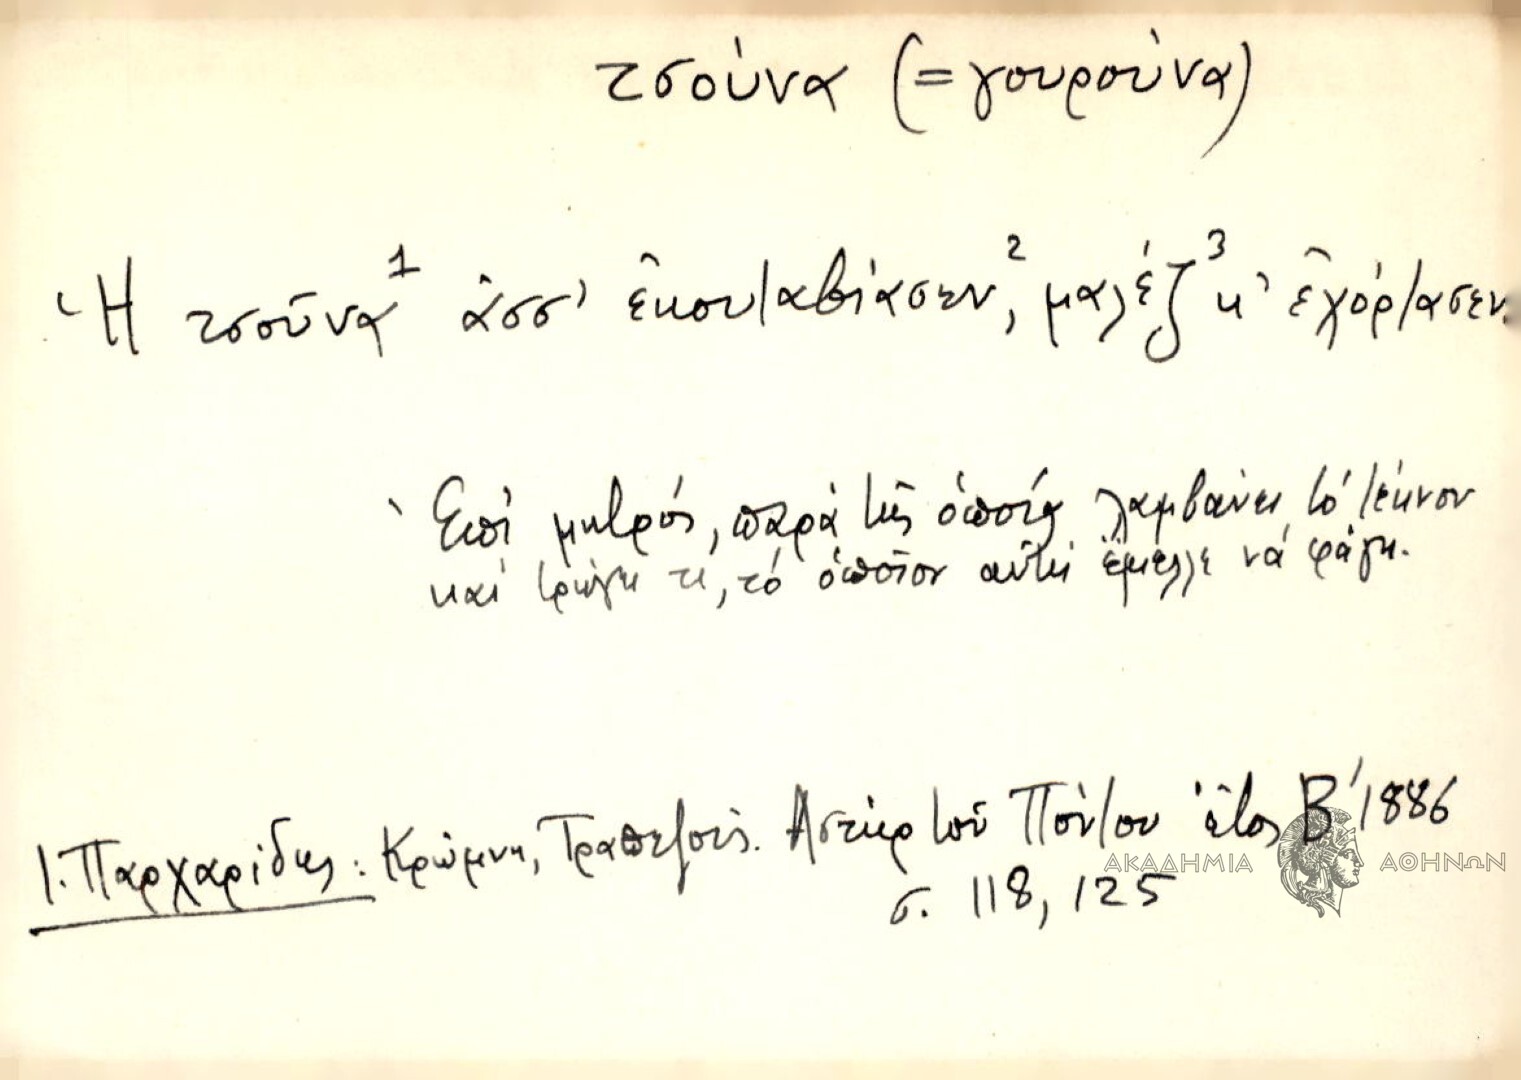 τσούνα (= γουρούνα)
Ἡ τσοῦνα¹ ἀσσ' ἐκουταβίασεν², μαλέζ³ κ' ἐχόρτασεν.
Ἐπὶ μητρός, παρὰ τῆς ὁποίας λαμβάνει τό τέκνον
καί τρώγει τι, τό ὁποῖον αὐτή ἔμελλε νά φάγη.
Ι. Παρχαρίδης: Κρώμνη, Τραπεζοῦς. Ἀστὴρ τοῦ Πόντου ἔτος Β' 1886
ΑΚΑΔΗΜΙΑ ΑΘΗΝΩΝ
σ. 118, 125